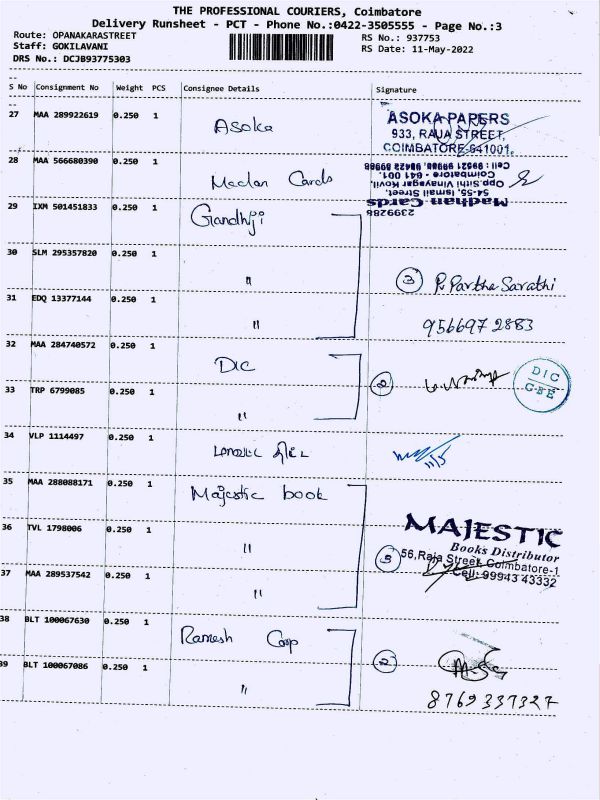 THE PROFESSIONAL COURIERS, Coimbatore
Delivery Runsheet - PCT - Phone No.:0422-3505555 - Page No.:3
Route: OPANAKARASTREET RS No.: 937753
Staff: GOKILAVANI RS Date: 11-May-2022
DRS No.: DCJB93775303
S No Consignment No Weight PCS Consignee Details Signature
27 MAA 289922619 0.250 1 Asoka
ASOKA PAPERS
933, RAJA STREET,
COIMBATORE-641001.
28 MAA 566680390 0.250 1 Madan Cards
Madhan Cards
54-55, Ismail Street,
Opp.Sithi Vinayagar Kovil,
Coimbatore - 641 001.
Cell : 99521 99988, 98422 89988
2399288
29 IXM 501451833 0.250 1 Gandhiji
30 SLM 295357820 0.250 1 "
3 P. Partha Sarathi
31 EDQ 13377144 0.250 1 "
9566972883
32 MAA 284740572 0.250 1 DIC
2
DIC
CBE
33 TRP 6799085 0.250 1 "
34 VLP 1114497 0.250 1
11/5
35 MAA 288088171 0.250 1 Majestic book
36 TVL 1798006 0.250 1 "
MAJESTIC
Books Distributor
3 56,Raja Street, Coimbatore-1
Cell: 99943 43332
37 MAA 289537542 0.250 1 "
38 BLT 100067630 0.250 1 Ramesh Corp
2
39 BLT 100067086 0.250 1 "
8769337327